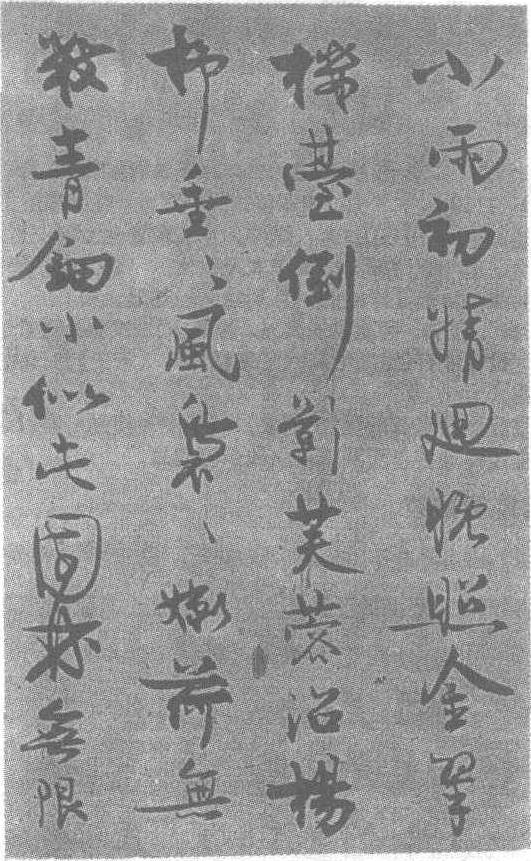 小雨初晴迴晚照金翠
樓臺倒影芙蓉沼楊
柳垂〻風裊〻嫩荷無
數青鈿小似此園林無限